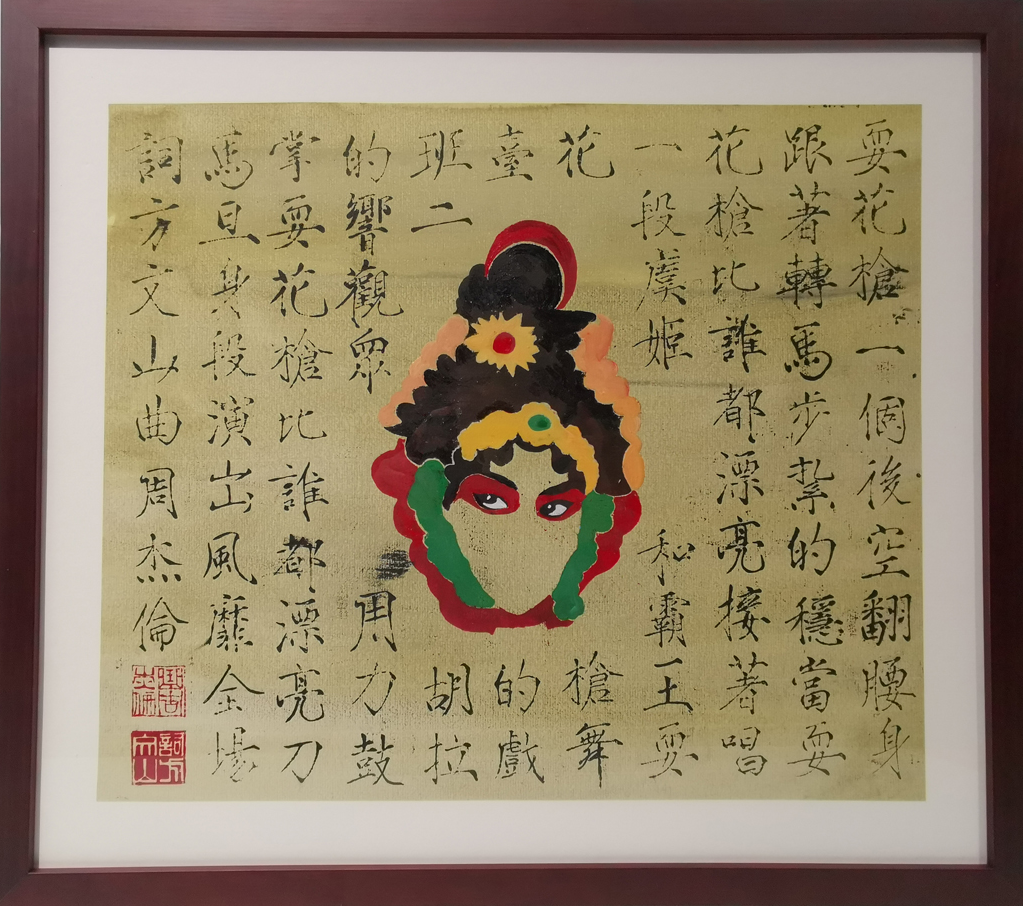 耍花槍一個後空翻腰身
跟著轉馬步紮的穩當耍
花槍比誰都漂亮接著唱
一段虞姬和霸王耍
花槍舞
臺的戲
班二胡拉
的響觀眾用力鼓
掌耍花槍比誰都漂亮刀
馬旦身段演出風靡全場
詞方文山曲周杰倫
詞方文山